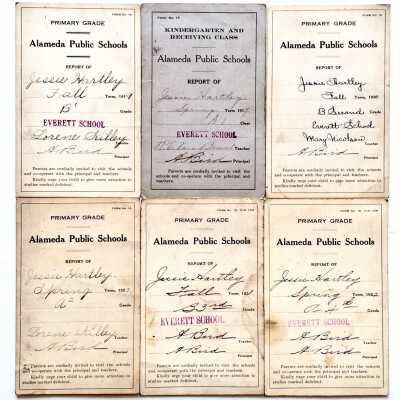 FORM NO. 19
PRIMARY GRADE
Alameda Public Schools
REPORT OF
Jessie Hartley
Fall Term, 191
B'
Grade
EVERETT SCHOOL
Lorene Killey
Teacher
A Bird
Principal
Parents are cordially invited to visit the schools
and co-operate with the principal and teachers.
Kindly urge your child to give more attention to
studies marked deficient.
FORM No. 18
KINDERGARTEN AND
RECEIVING CLASS
Alameda Public Schools
REPORT OF
Jessie Hartley
Spring Term, 191
A'
Class
EVERETT SCHOOL
Teacher
A Bird
Principal
Parents are cordially invited to visit the schools
and co-operate with the principal and teachers.
Kindly urge your child to give more attention to
studies marked deficient.
FORM No. 19
PRIMARY GRADE
Alameda Public Schools
REPORT OF
Jessie Hartley
Fall Term, 19
B Second Grade
Everett School
Mary Nicolson
Teacher
A Bird
Principal
Parents are cordially invited to visit the schools
and co-operate with the principal and teachers.
Kindly urge your child to give more attention to
studies marked deficient.
FORM No. 19
PRIMARY GRADE
Alameda Public Schools
REPORT OF
Jessie Hartley
Spring Term, 19
A2
Grade
Killey
Teacher
A Bird
Principal
Parents are cordially invited to visit the schools
and co-operate with the principal and teachers.
Kindly urge your child to give more attention to
studies marked deficient.
PRIMARY GRADE
Alameda Public Schools
REPORT OF
Jessie Hartley
Fall Term, 192
B 3rd Grade
EVERETT SCHOOL
A Bird
Teacher
A Bird
Principal
Parents are cordially invited to visit the schools
and co-operate with the principal and teachers.
Kindly urge your child to give more attention to
studies marked deficient.
PRIMARY GRADE
Alameda Public Schools
REPORT OF
Jessie Hartley
Spring Term, 1922
A-4th Grade
EVERETT SCHOOL
A Bird
Teacher
A Bird
Principal
Parents are cordially invited to visit the schools
and co-operate with the principal and teachers.
Kindly urge your child to give more attention to
studies marked deficient.